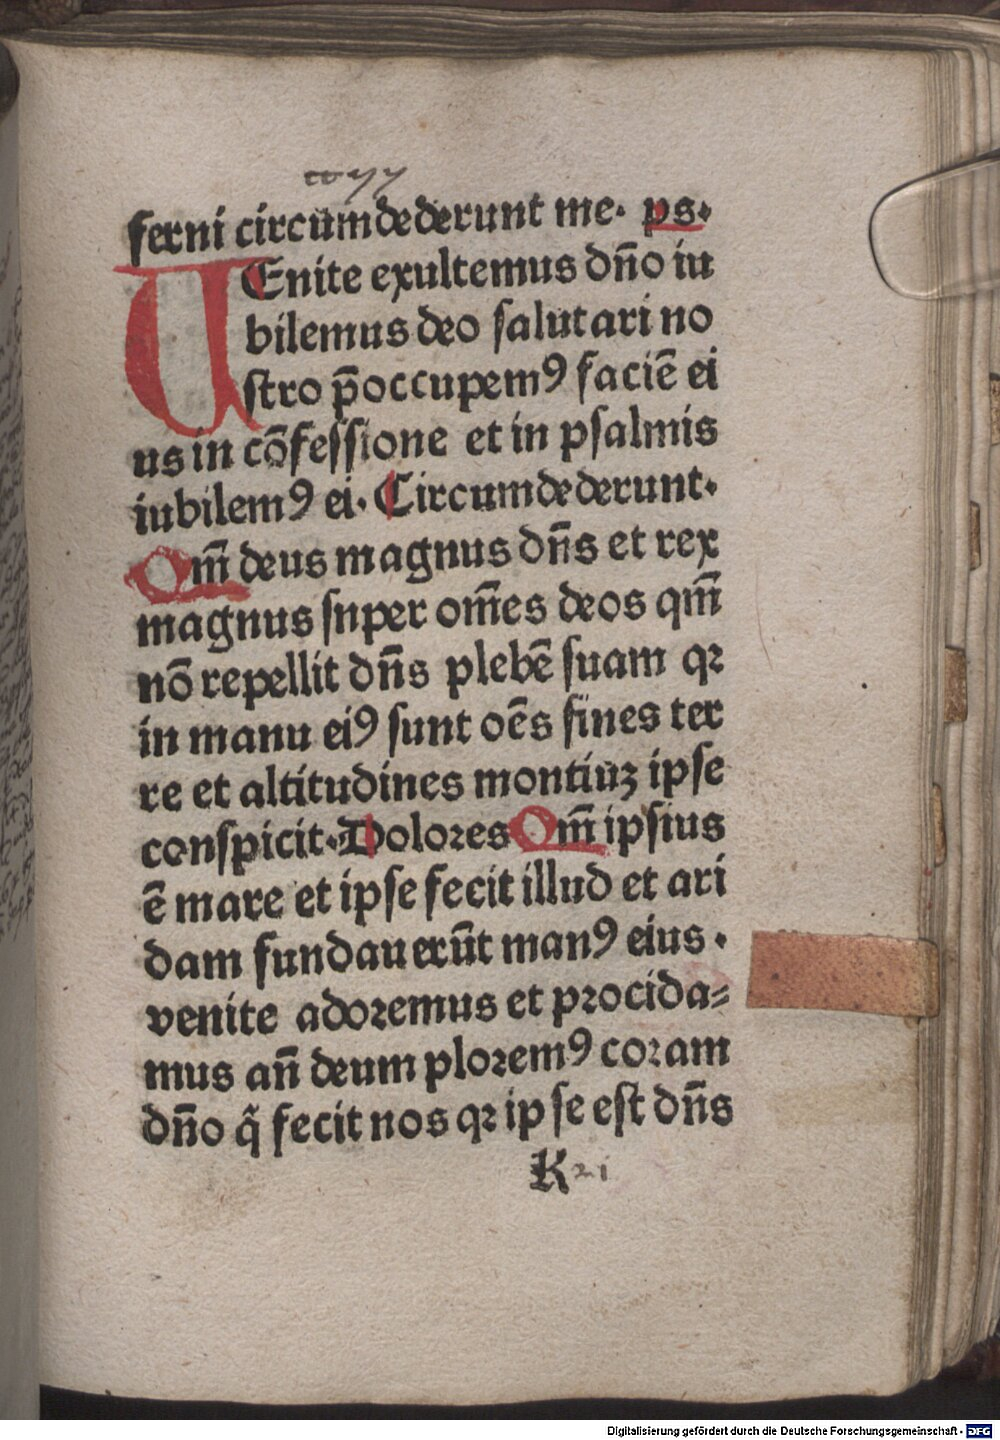 ferni circumdederunt me. ps.
VEnite exultemus dño iu
bilemus deo salutari no
stro p̄occupemꝰ faciē ei
us in cōfessione et in psalmis
iubilemꝰ ei. Circumdederunt.
Qm̄ deus magnus dñs et rex
magnus snper om̄es deos qm̄
nō repellit dñs plebē suam qꝛ
in manu eiꝰ sunt oēs fines ter
re et altitudines montiuꝫ ipse
conspicit. Dolores Qm̄ ipsius
ē mare et ipse fecit illud et ari
dam fundauerūt manꝰ eius.
venite adoremus et procida⸗
mus añ deum ploremꝰ coram
dño q̄ fecit nos qꝛ ipse est dñs
K
Digitalisierung gefördert durch die Deutsche Forschungsgemeinschaft - DFG